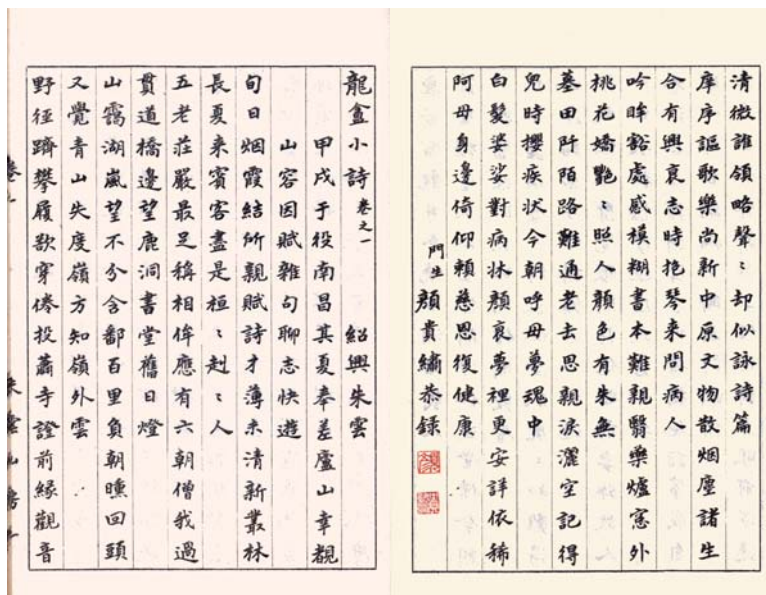 清微誰領略聲〻却似詠詩篇
庠序謳歌樂尚新中原文物散烟塵諸生
合有興哀志時抱琴来問病人
吟眸豁處感模糊書本難親翳藥爐窓外
桃花嬌艷〻照人顔色有朱無
墓田阡陌路難通老去思親淚灑空記得
兒時攖疾状今朝呼母夢魂中
白髮婆娑對病牀顔哀夢裡更安詳依稀
阿母身邊倚仰賴慈恩復健康
門生顔貴繡恭錄
龍盦小詩 卷之一 紹興朱雲
甲戍于役南昌其夏奉差廬山幸覩
山容因賦雜句聊志快遊
旬日烟霞結所親賦詩才薄未清新叢林
長夏来賓客盡是桓〻赳〻人
五老莊嚴最足稱相侔應有六朝僧我過
貫道橋邊望鹿洞書堂舊日燈
山靄湖嵐望不分含鄱百里負朝曛回頭
又覺青山失度嶺方知嶺外雲
野徑躋攀履欲穿倦投蕭寺證前緣觀音